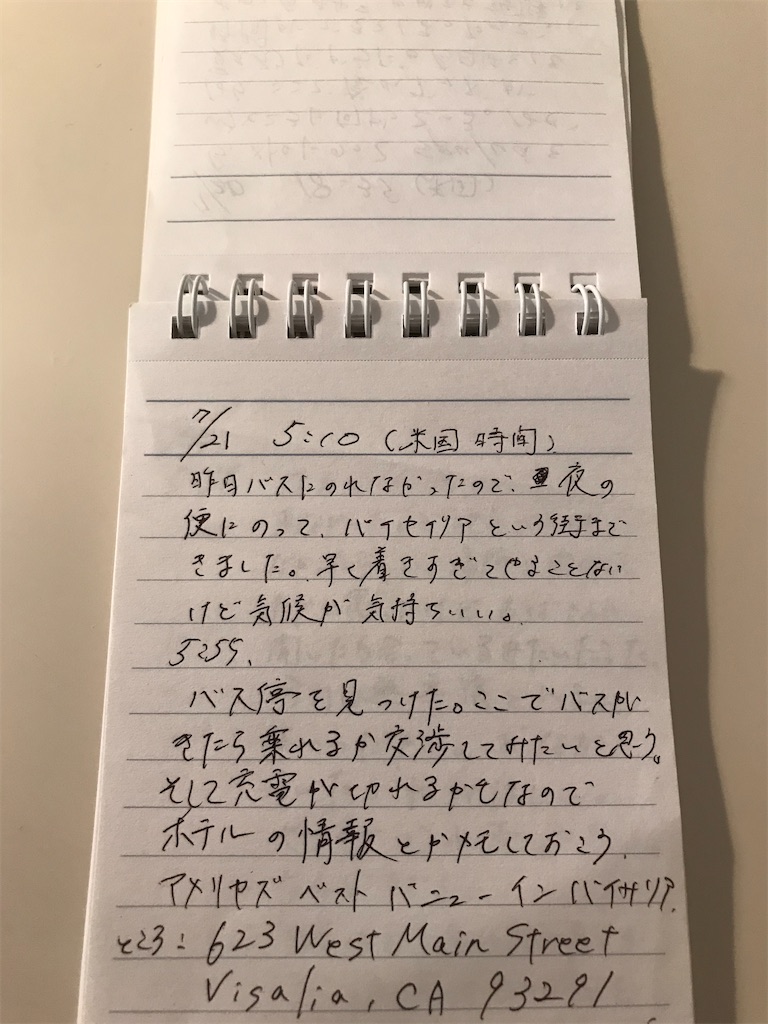 7/21 5:10 (米国時間)
昨日バスにのれなかったので、夜の
便にのって、バイセイリアという街まで
きました。早く着きすぎてやることない
けど気候が気持ちいい。
5:55、
バス停を見つけた。ここでバスが
きたら乗れるか交渉してみたいと思う。
そして充電が切れるかもなので
ホテルの情報とかメモしておこう。
アメリカズ ベスト バニュー イン バイサリア
ところ: 623 West Main Street
Visalia, CA 93291